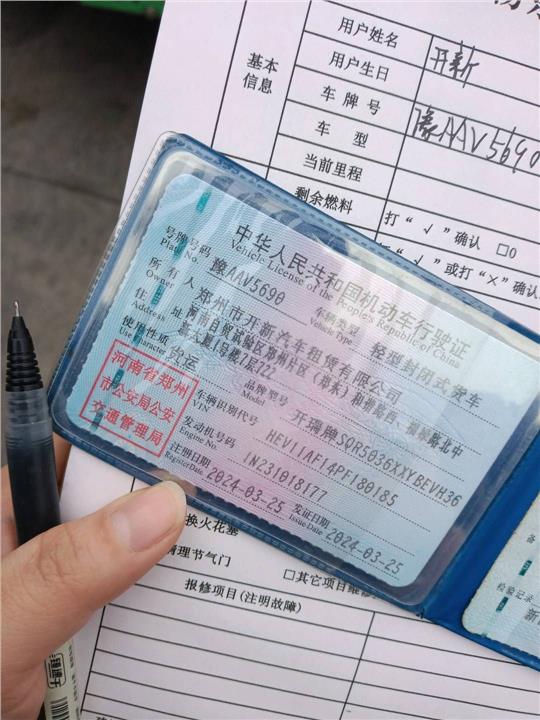 用户姓名 开新
基本信息
用户生日
车牌号 豫AAV5690
车 型
当前里程
剩余燃料 打“√”确认 □0
“√”或打“×”确认
中华人民共和国机动车行驶证
Vehicle License of the People's Republic of China
号牌号码 豫AAV5690 车辆类型 轻型封闭式货车
Plate No. Vehicle Type
所有人 郑州市开新汽车租赁有限公司
Owner
住址 河南自贸试验区郑州片区(郑东)
Address
使用性质 货运 品牌型号 开瑞牌SQR5036XXYBEVH36
Use Character Model
河南省郑州
市公安局公安
交通管理局
车辆识别代号 HEV11AF14PF180185
VIN
发动机号码 1N231018177
Engine No.
注册日期 2024-03-25 发证日期 2024-03-25
Register Date Issue Date
检验记录
换火花塞
清理节气门
□其它项目维修
报修项目(注明故障)